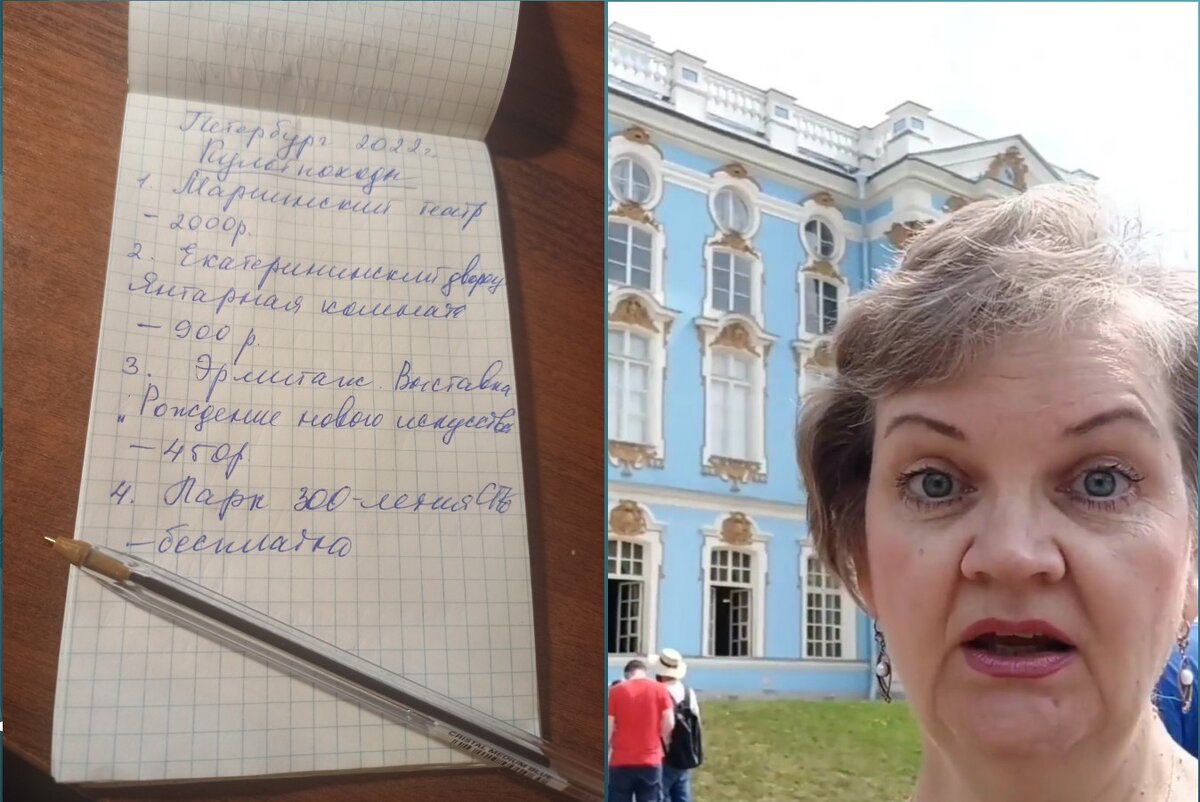 Петербург 2022г.
Культпоходы
1. Мариинский театр
- 2000р.
2. Екатерининский дворец
Янтарная комната
- 900 р.
3. Эрмитаж. Выставка
"Рождение нового искусства
- 450р
4. Парк 300-летия СПб
- бесплатно
CRISTAL MEDIUM BLUE